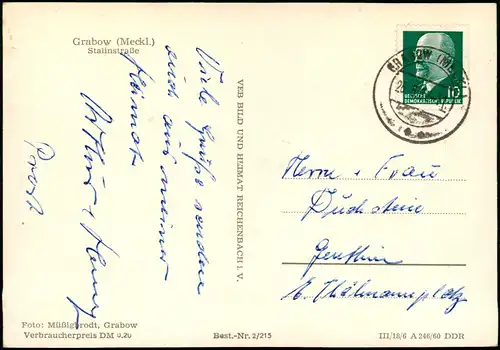 Grabow (Meckl.)
Stalinstraße
Viele Grüße senden
euch aus unserer
Heimat
Prost.
VEB BILD UND HEIMAT REICHENBACH I. V.
GRABOW (MECKL)
10
DEUTSCHE
DEMOKRATISCHE REPUBLIK
Herrn + Frau
Duchstein
Genthin
E. Thälmannplatz
Foto: Müßigbrodt, Grabow
Verbraucherpreis DM 0.20
Best.-Nr. 2/215
III/18/6 A 246/60 DDR